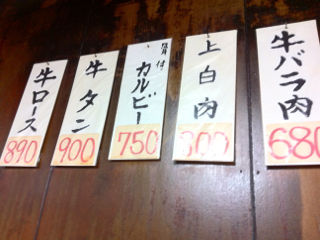 牛ロース
890
牛タン
900
骨付
カルビー
750
上白肉
300
牛バラ肉
680